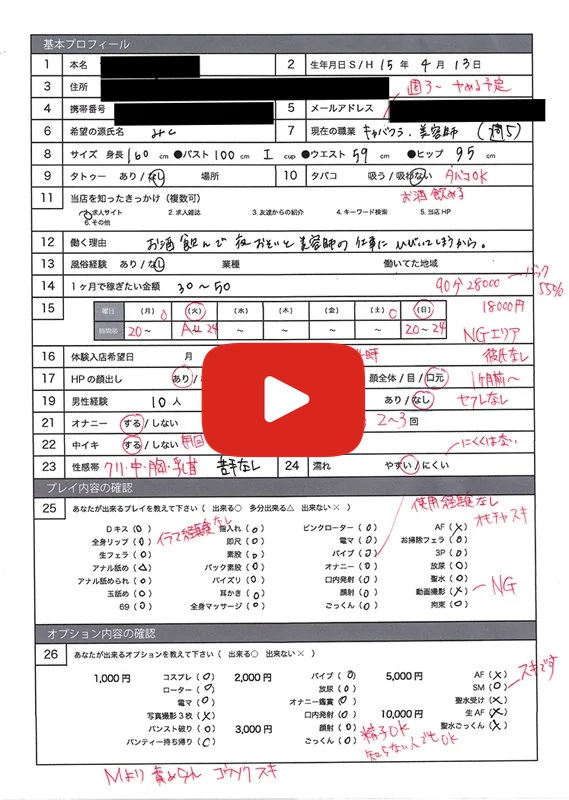 基本プロフィール
1 本名 2 生年月日 S/H 15年 4月 13日
3 住所
週3〜 やめる予定
4 携帯番号 5 メールアドレス
6 希望の源氏名 みく 7 現在の職業 キャバクラ・美容師 (週5)
8 サイズ 身長 160 cm ●バスト 100 cm I cup ●ウエスト 59 cm ●ヒップ 95 cm
9 タトゥー あり/なし 場所 10 タバコ 吸う/吸わない タバコOK
11 当店を知ったきっかけ(複数可) お酒飲める
1.求人サイト 2.求人雑誌 3.友達からの紹介 4.キーワード検索 5.当店HP
6.その他
12 働く理由 お酒飲んで夜おそいと美容師の仕事にひびいてしまうから。
13 風俗経験 あり/なし 業種 働いてた地域
14 1ヶ月で稼ぎたい金額 30〜50 90分 28000 バック 55%
15 曜日 (月) (火) (水) (木) (金) (土) (日) 18000円
時間帯 20〜 24 〜 〜 〜 〜 20〜24 NGエリア
16 体験入店希望日 月 彼氏なし
17 HPの顔出し あり/ 顔全体/目/口元 1ヶ月前〜
19 男性経験 10人 あり/なし セフレなし
21 オナニー する/しない 2〜3回
22 中イキ する/しない にくくはない
23 性感帯 クリ・中・胸・乳首 苦手なし 24 濡れ やすい/にくい
プレイ内容の確認
使用経験なし
25 あなたが出来るプレイを教えて下さい( 出来る○ 多分出来る△ 出来ない× ) オモチャスキ
イラマ経験なし
Dキス(○) 指入れ(○) ピンクローター(○) AF(×)
全身リップ(○) 即尺(○) 電マ(○) お掃除フェラ(○)
生フェラ(○) 素股(○) バイブ(○) 3P(○)
アナル舐め(△) バック素股(○) オナニー(○) 放尿(○)
アナル舐められ(○) パイズリ(○) 口内発射(○) 聖水(○)
玉舐め(○) 耳かき(○) 顔射(○) 動画撮影(×) NG
69(○) 全身マッサージ(○) ごっくん(○) 拘束(○)
オプション内容の確認
26 あなたが出来るオプションを教えて下さい( 出来る○ 出来ない× )
スキです
1,000円 コスプレ(○) 2,000円 バイブ(○) 5,000円 AF(×)
ローター(○) 放尿(○) SM(○)
電マ(○) オナニー鑑賞(○) 聖水受け(×)
写真撮影3枚(×) 口内発射(○) 10,000円 生AF(×)
パンスト破り(○) 3,000円 顔射(○) 聖水ごっくん(×)
パンティー持ち帰り(○) ごっくん(○) 精子OK
知らない人でもOK
Mより